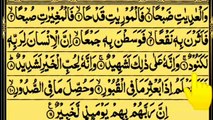 وَالْعٰدِيٰتِ ضَبْحًا ۙ فَالْمُوْرِيٰتِ قَدْحًا ۙ فَالْمُغِيْرٰتِ صُبْحًا ۙ
فَاَثَرْنَ بِهٖ نَقْعًا ۙ فَوَسَطْنَ بِهٖ جَمْعًا ۙ اِنَّ الْاِنْسَانَ لِرَبِّهٖ
لَكَنُوْدٌ ۚ وَاِنَّهٗ عَلٰى ذٰلِكَ لَشَهِيْدٌ ۚ وَاِنَّهٗ لِحُبِّ الْخَيْرِ لَشَدِيْدٌ ؕ
اَفَلَا يَعْلَمُ اِذَا بُعْثِرَ مَا فِى الْقُبُوْرِ ۙ وَحُصِّلَ مَا فِى الصُّدُوْرِ ۙ
اِنَّ رَبَّهُمْ بِهِمْ يَوْمَئِذٍ لَّخَبِيْرٌ